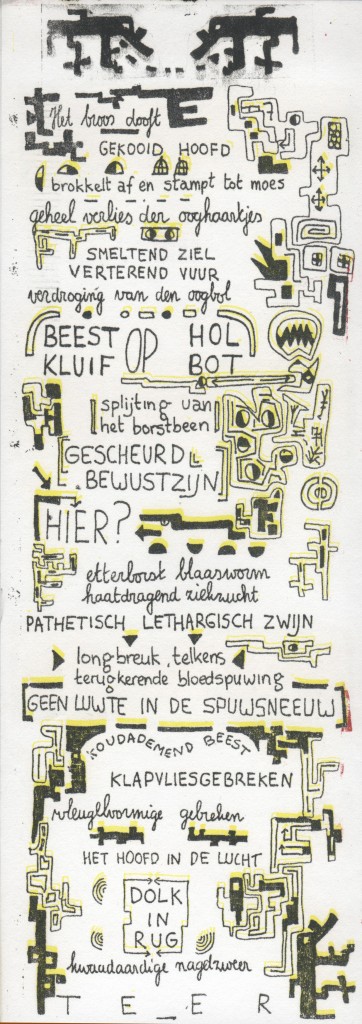 Het broos dooft
GEKOOID HOOFD
brokkelt af en stampt tot moes
geheel verlies der ooghaartjes
SMELTEND ZIEL
VERTEREND VUUR
verdroging van den oogbol
BEEST OP HOL
KLUIF BOT
splijting van
het borstbeen
GESCHEURD
BEWUSTZIJN
HIER?
etterborst blaasworm
haatdragend zielszucht
PATHETISCH LETHARGISCH ZWIJN
longbreuk, telkens
terugkerende bloedspuwing
GEEN LUWTE IN DE SPUWSNEEUW
KOUDADEMEND BEEST
KLAPVLIESGEBREKEN
vleugelvormige gebreken
HET HOOFD IN DE LUCHT
DOLK
IN
RUG
kwaadaardige nagelzweer
T E _ E R